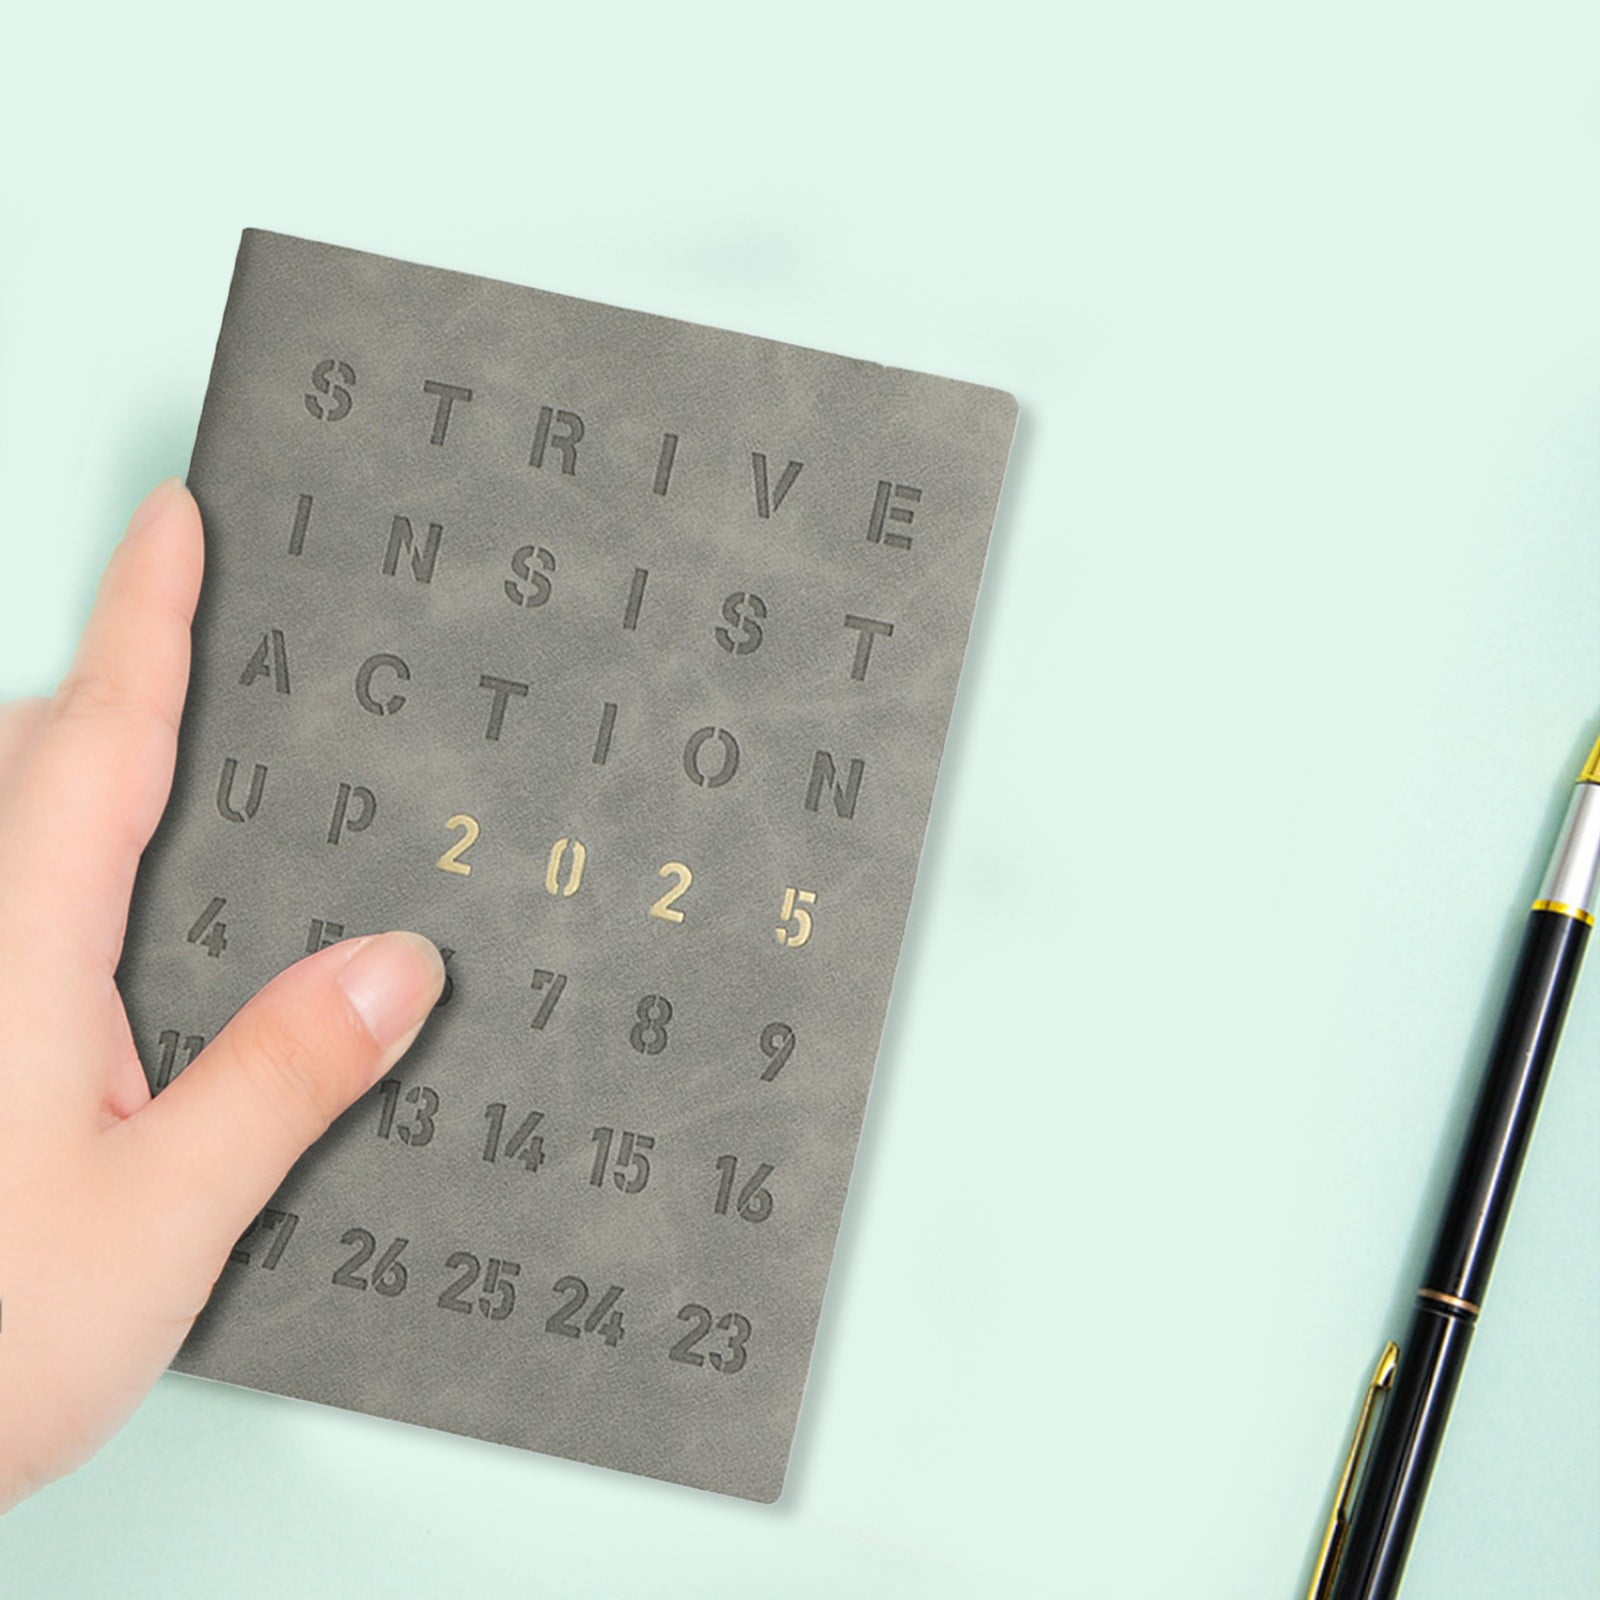 STRIVE
INSIST
ACTION
UP 2025
4 5 6 7 8 9
11 13 14 15 16
27 26 25 24 23